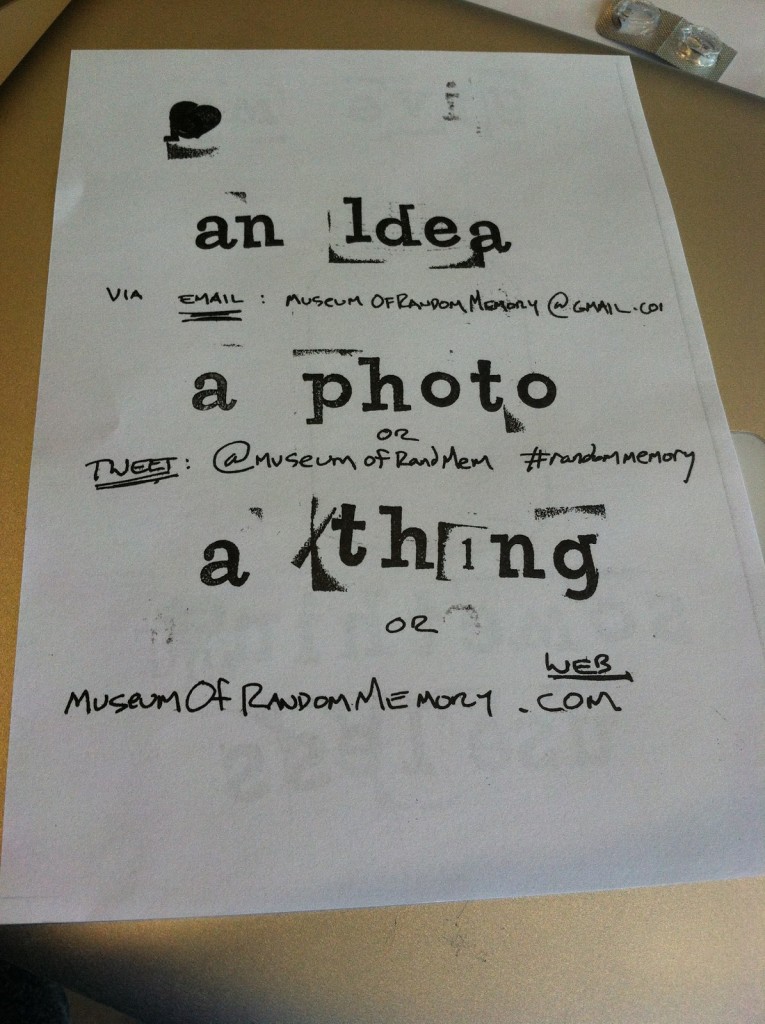 an idea
VIA EMAIL: MUSEUMOFRANDOMMEMORY@GMAIL.COM
a photo
OR
TWEET: @MuseumofRandMem #randommemory
a thing
OR
WEB
MUSEUMOFRANDOMMEMORY.COM